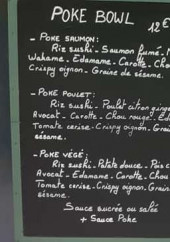 POKE BOWL
12€
- POKE SAUMON:
Riz sushi - Saumon fumé -
Wakame - Edamame - Carotte - Chou
Crispy oignon - Graine de sésame.
- POKE POULET:
Riz sushi - Poulet citron
Avocat - Carotte - Chou rouge -
Tomate cerise - Crispy oignon - Grain
sésame.
- POKE VÉGÉ:
Riz sushi - Patate douce - Pois c
Avocat - Edamame - Carotte - Chou
Tomate cerise - Crispy oignon - Grain
sésame.
Sauce sucrée ou salée
+ Sauce Poke